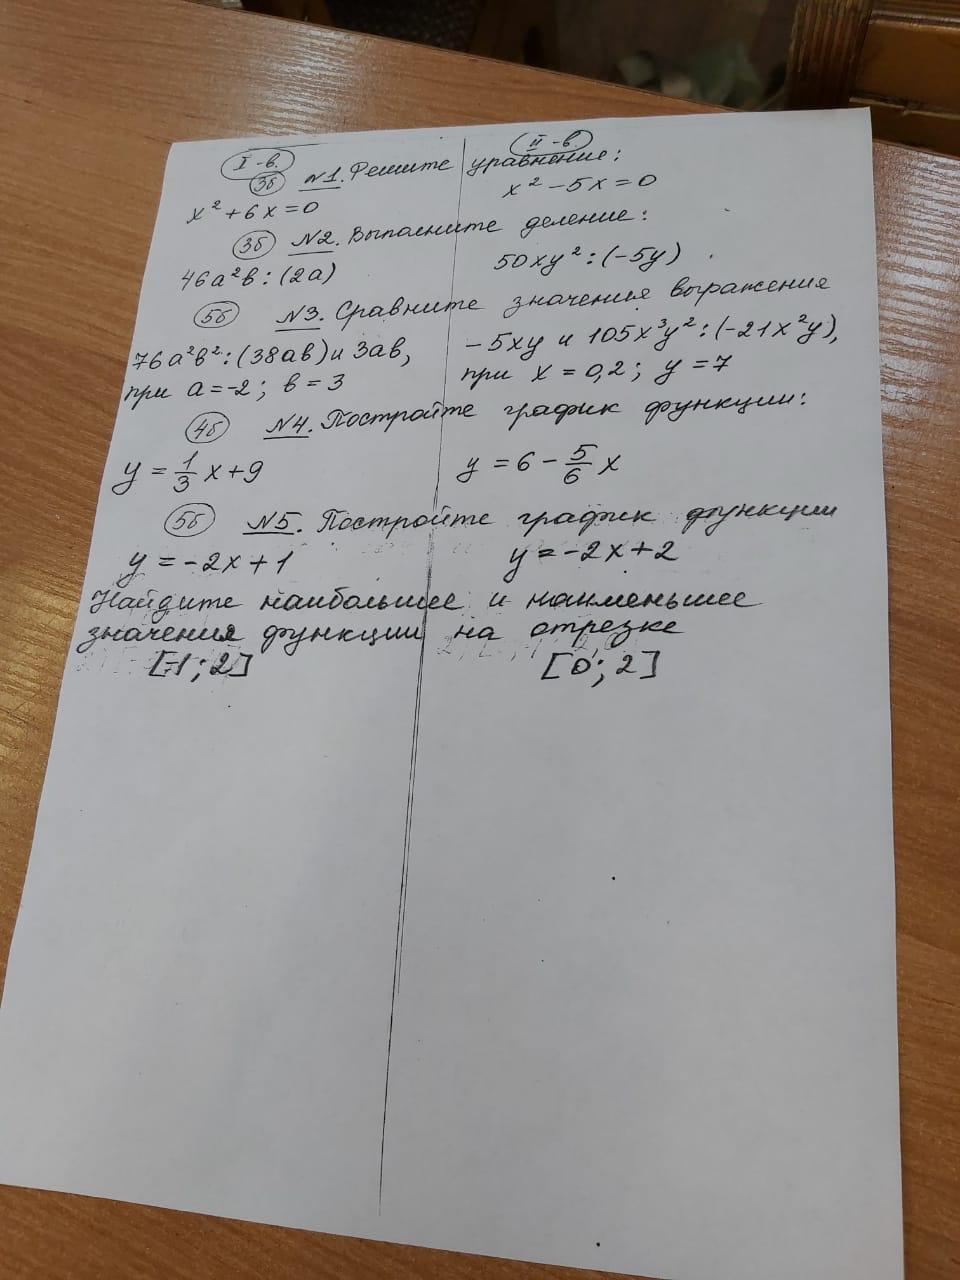 I-в. II-в.
3б №1. Решите уравнение:
x² + 6x = 0 x² - 5x = 0
3б №2. Выполните деление:
46a²в : (2a) 50xy² : (-5y)
5б №3. Сравните значения выражения
76a²в² : (38aв) и 3aв, -5xy и 105x³y² : (-21x²y),
при a = -2; в = 3 при x = 0,2; y = 7
4б №4. Постройте график функции:
y = 1/3 x + 9 y = 6 - 5/6 x
5б №5. Постройте график функции
y = -2x + 1 y = -2x + 2
Найдите наибольшее и наименьшее
значения функции на отрезке
[-1; 2] [0; 2]